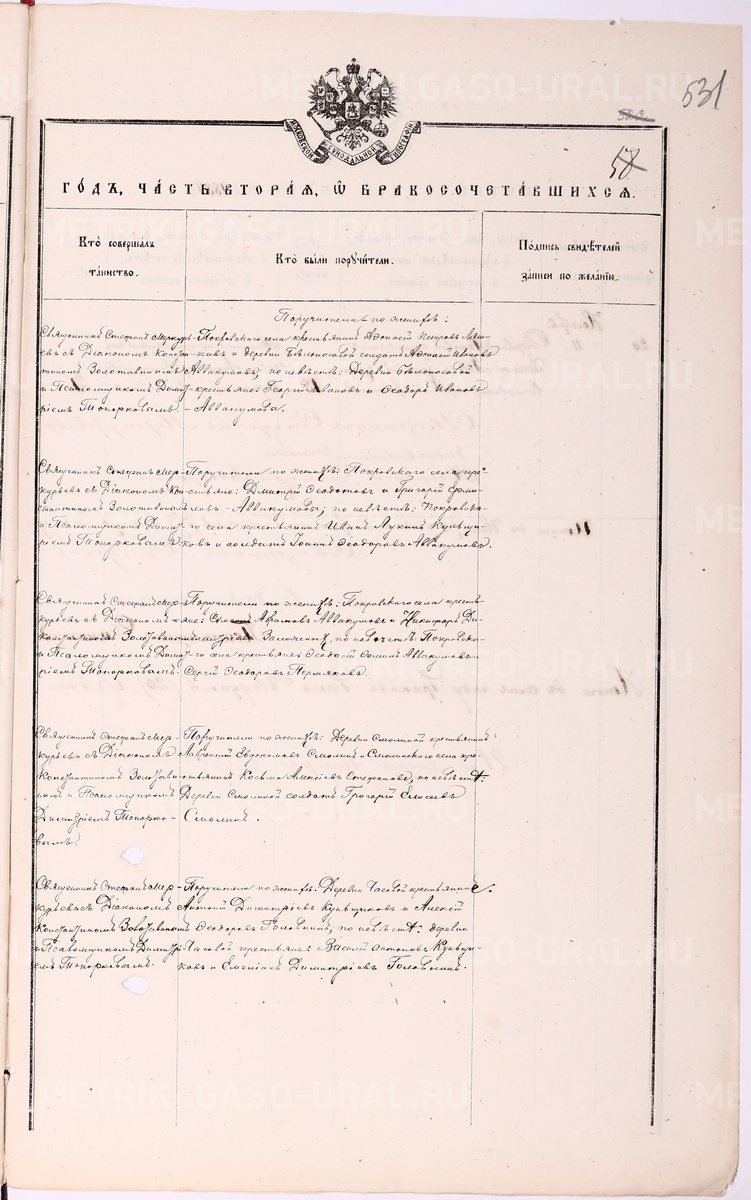 531
58
МОСКОВСКОЙ СѴНОДАЛЬНОЙ ТИПОГРАФІИ
ГО́ДЪ, ЧА́СТЬ ВТОРА́Я, Ѽ БРАКОСОЧЕТА́ВШИХСЯ.
Кто̀ соверша́лъ та́инство.
Кто̀ бы́ли поручи́тели.
По́дпись свидѣ́телей за́писи по жела́нію.
Поручители по женихѣ:
Священникъ Стефанъ Меркурь-
евъ съ Діакономъ Констан-
тиномъ Золотавинымъ
и Псаломщикомъ Дими-
тріемъ Топорковымъ.
Покровскаго села крестьянинъ Афонасій Петровъ
ковъ и деревни Бѣлоносовой солдатъ Афонасій Ивановъ
Аввакумовъ, по невѣстѣ: Деревни Бѣлоносовой
крестьяне: Георгій Ивановъ и Ѳеодоръ Ивановъ
Аввакумовы.
Священникъ Стефанъ Мер-
курьевъ съ Діакономъ Кон-
стантиномъ Золотавинымъ
и Псаломщикомъ Дими-
тріемъ Топорковымъ.
Поручители по женихѣ: Покровскаго села кре-
стьяне: Димитрій Ѳеодотовъ и Григорій
Аввакумовы, по невѣстѣ: Покровска-
го села крестьянинъ Иванъ Лукинъ Кунвщи-
ковъ и солдатъ Іоаннъ Ѳеодоровъ Аввакумовъ.
Священникъ Стефанъ Мер-
курьевъ съ Діакономъ
Константиномъ Золотавинымъ
и Псаломщикомъ Дими-
тріемъ Топорковымъ.
Поручители по женихѣ: Покровскаго села кресть-
яне: Аврамовъ Аввакумовъ и Никифоръ Ди-
митріевъ по невѣстѣ: Покровска-
го села крестьяне: Ѳеодосій Аввакумовъ и
Сергій Ѳеодоровъ Пермяковъ.
Священникъ Стефанъ Мер-
курьевъ съ Діакономъ
Константиномъ Золотави-
нымъ и Псаломщикомъ
Димитріемъ Топорко-
вымъ.
Поручители по женихѣ: Деревни Смолиной крестьянинъ
Лаврентій Евдокимовъ Смолинъ и Смолинскаго села кре-
стьянинъ Косьма Алексѣевъ Стефановъ, по невѣстѣ:
Деревни Смолиной солдатъ Григорій Елисеевъ
Смолинъ.
Священникъ Стефанъ Мер-
курьевъ съ Діакономъ
Константиномъ Золотавинымъ
и Псаломщикомъ Димитрі-
емъ Топорковымъ.
Поручители по женихѣ: Деревни Часовой крестьяне:
Антоній Димитріевъ Кунвщиковъ и Алексій
Ѳеодоровъ Головинъ, по невѣстѣ: деревни
Часовой крестьяне: Василій Антоновъ Кунвщи-
ковъ и Емеліанъ Димитріевъ Головинъ.
METRIKI.GASO-URAL.RU